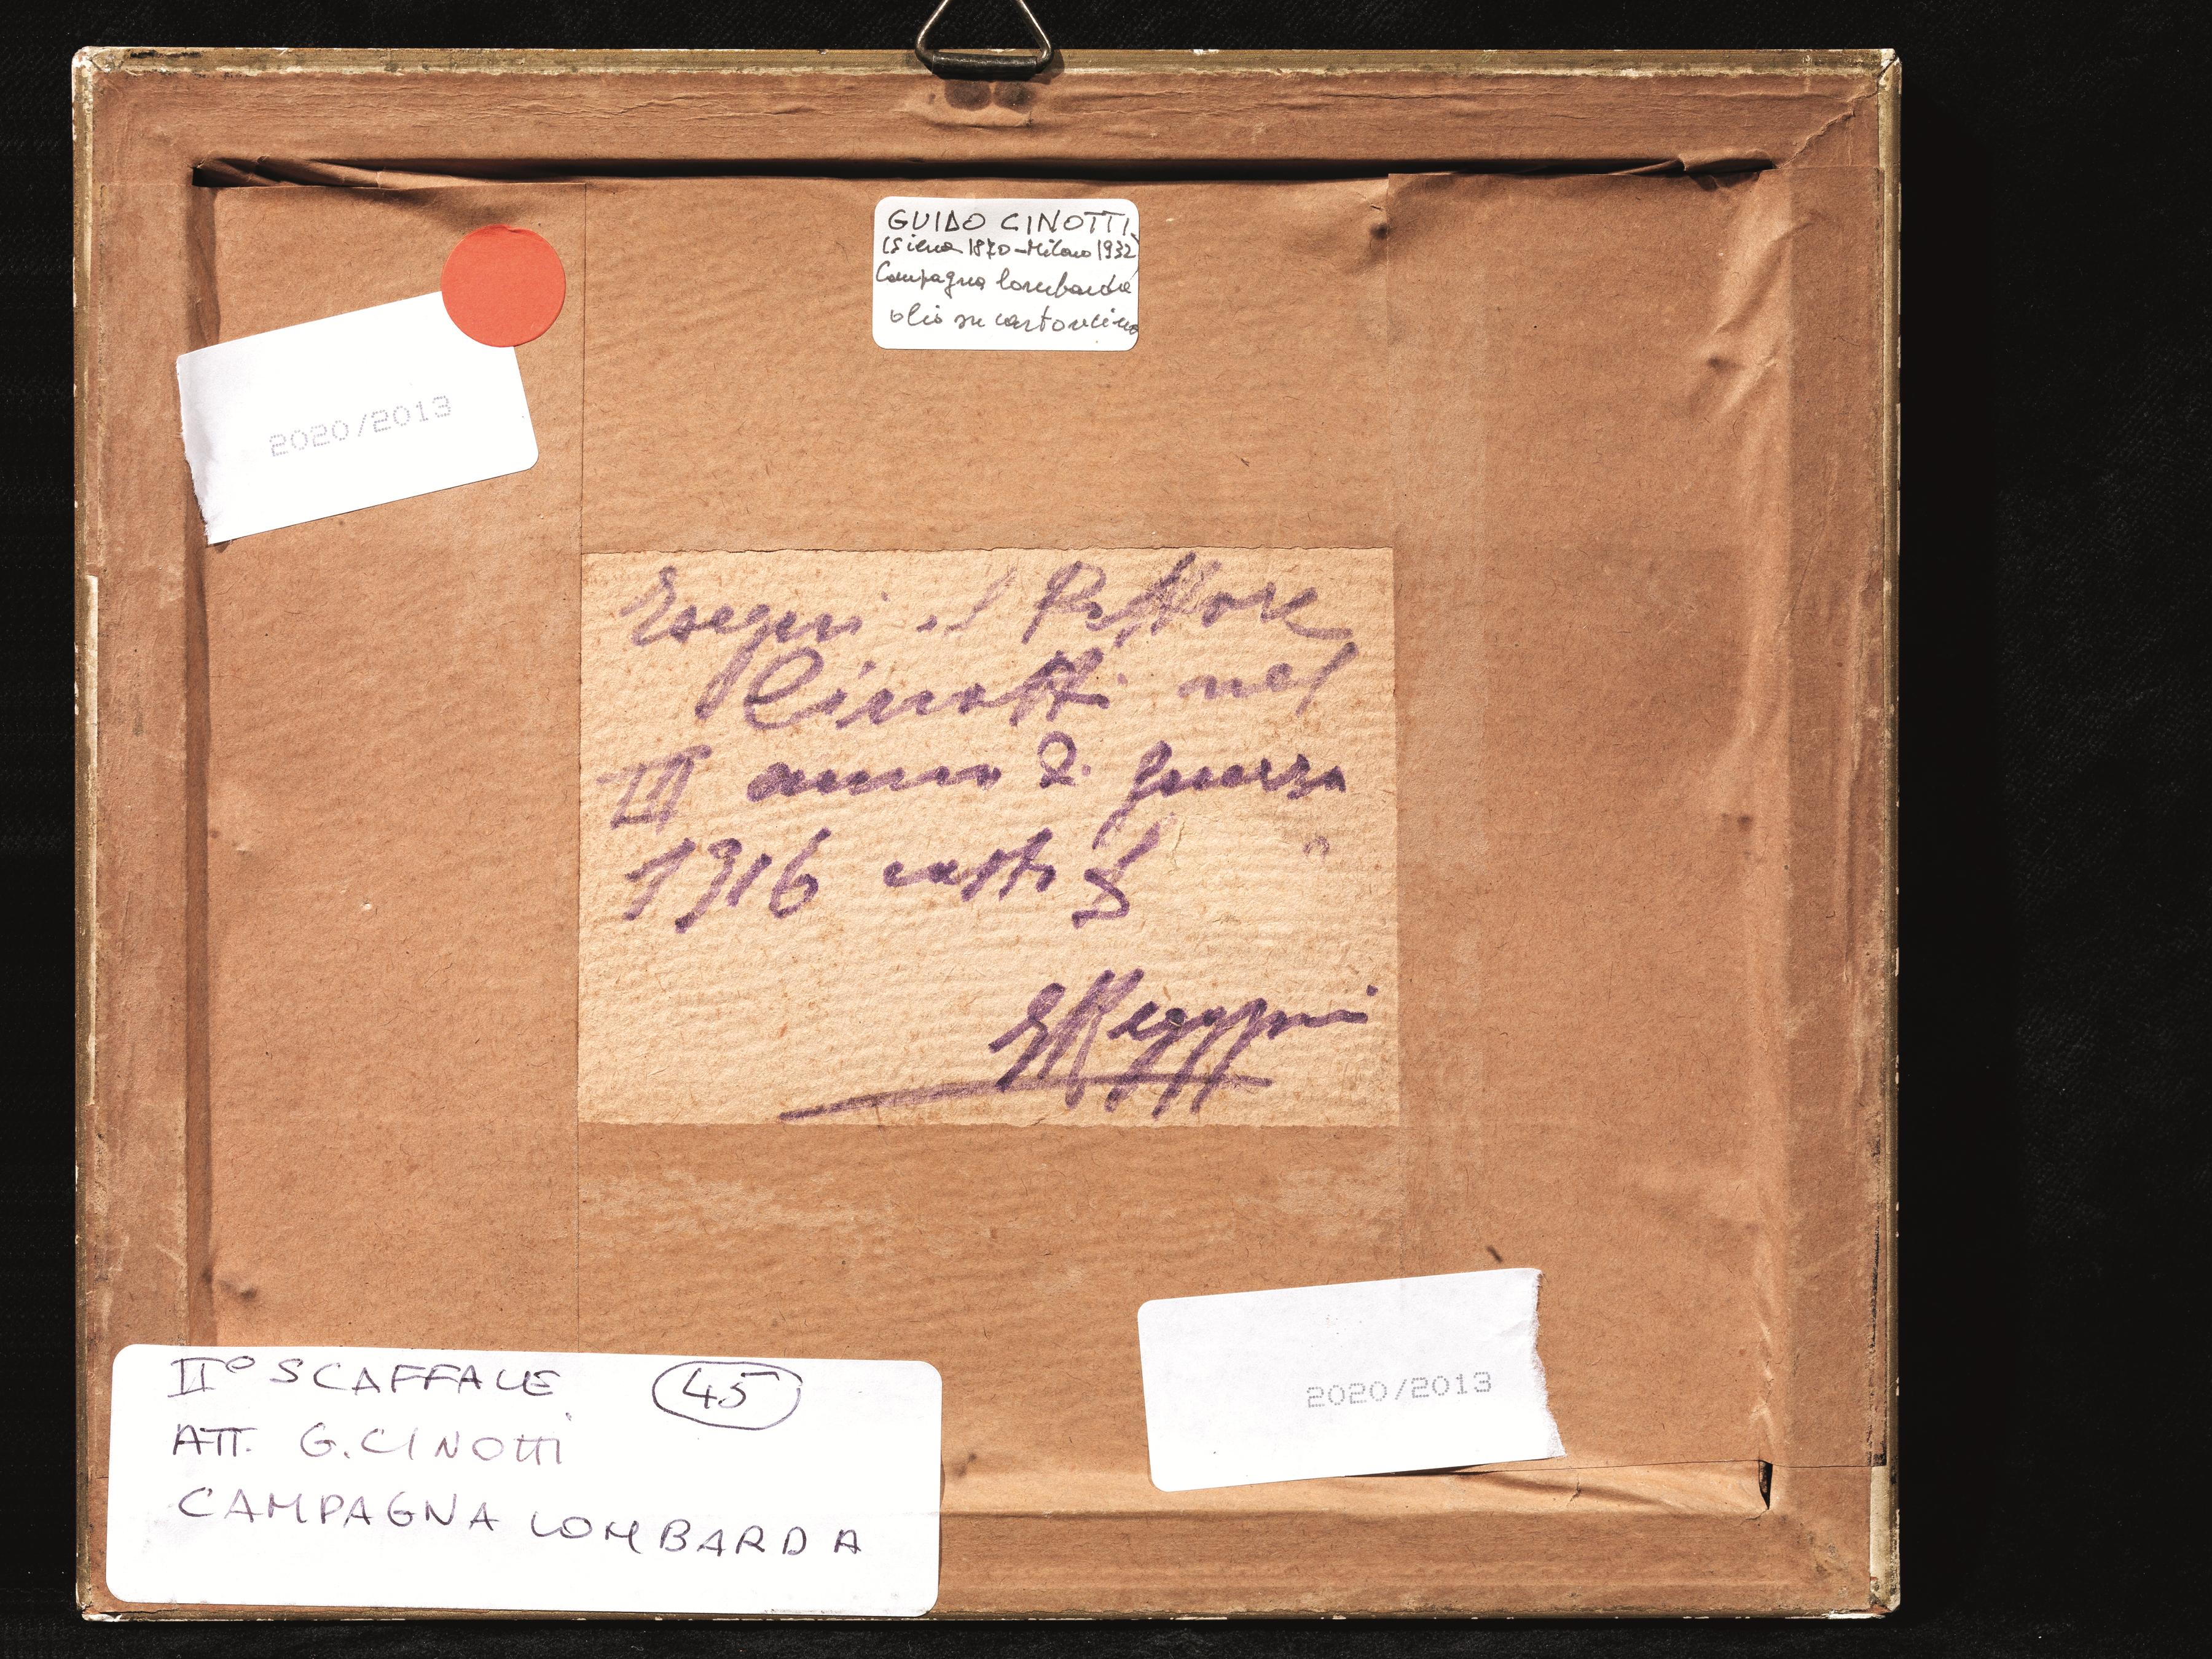 GUIDO CINOTTI
(Siena 1870-Milano 1932)
Campagna lombarda
olio su cartoncino
2020/2013
Eseguì il Pittore
Cinotti nel
III anno di guerra
1916
2020/2013
IIº SCAFFALE 45
ATT. G. CINOTTI
CAMPAGNA LOMBARDA